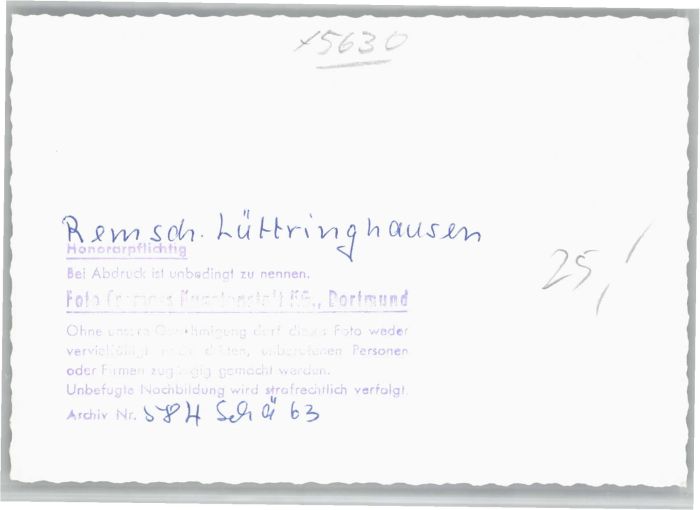 x5630
Remsch. Lüttringhausen
Honorarpflichtig
Bei Abdruck ist unbedingt zu nennen.
Foto Kunstanstalt KG., Dortmund
25,/
Ohne unsere Genehmigung darf dieses Foto weder
vervielfältigt, noch dritten, unberufenen Personen
oder Firmen zugängig gemacht werden.
Unbefugte Nachbildung wird strafrechtlich verfolgt.
Archiv Nr. 584 Schä 63